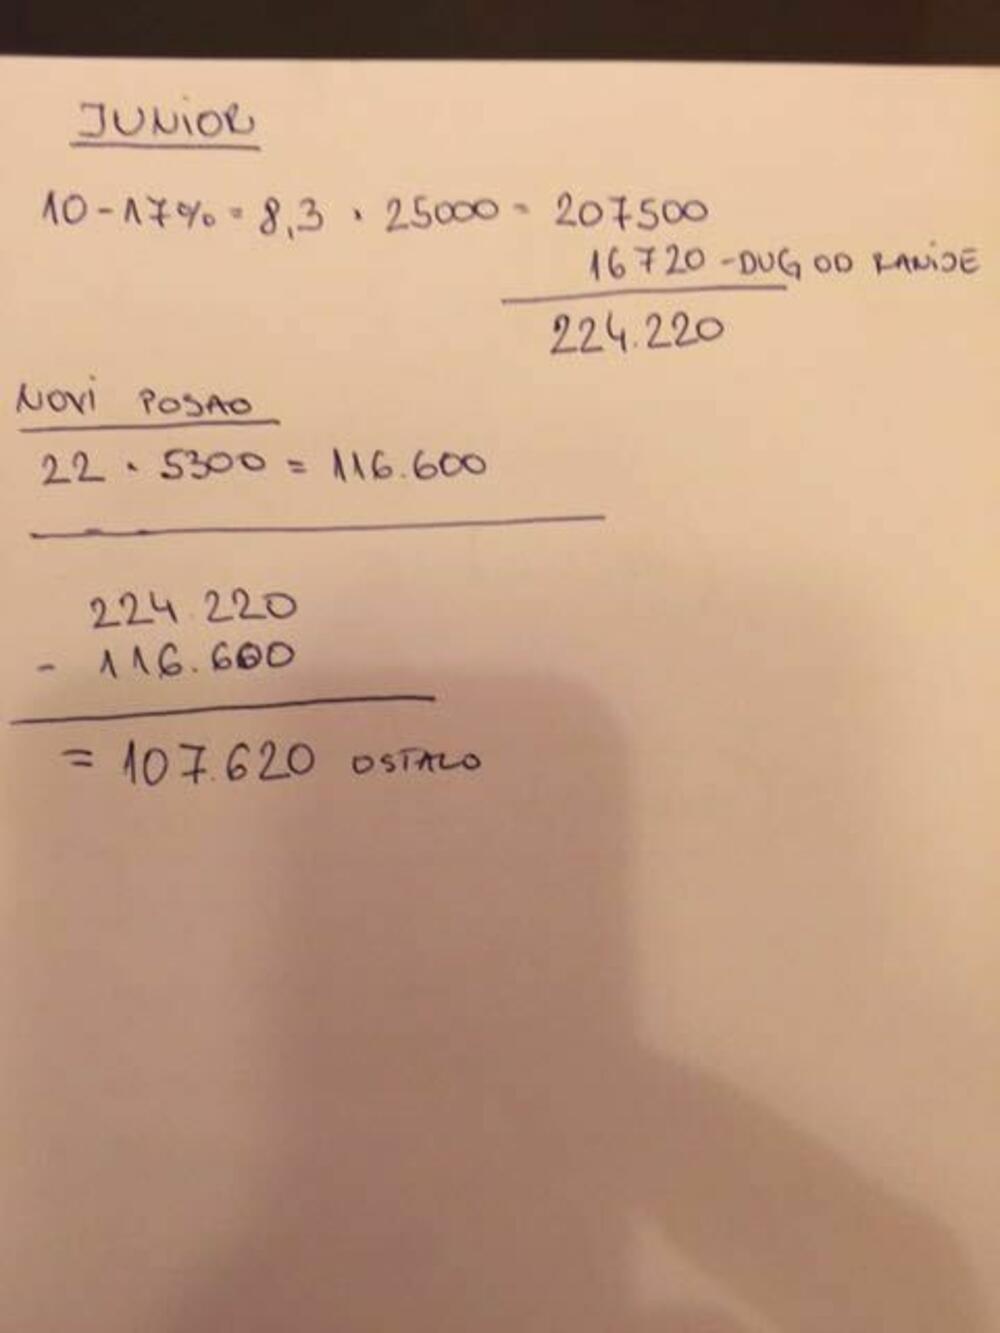 JUNIOR
10-17% = 8,3 · 25000 = 207500
16720 - DUG OD RANIJE
224.220
NOVI POSAO
22 · 5300 = 116.600
224.220
- 116.600
= 107.620 OSTALO